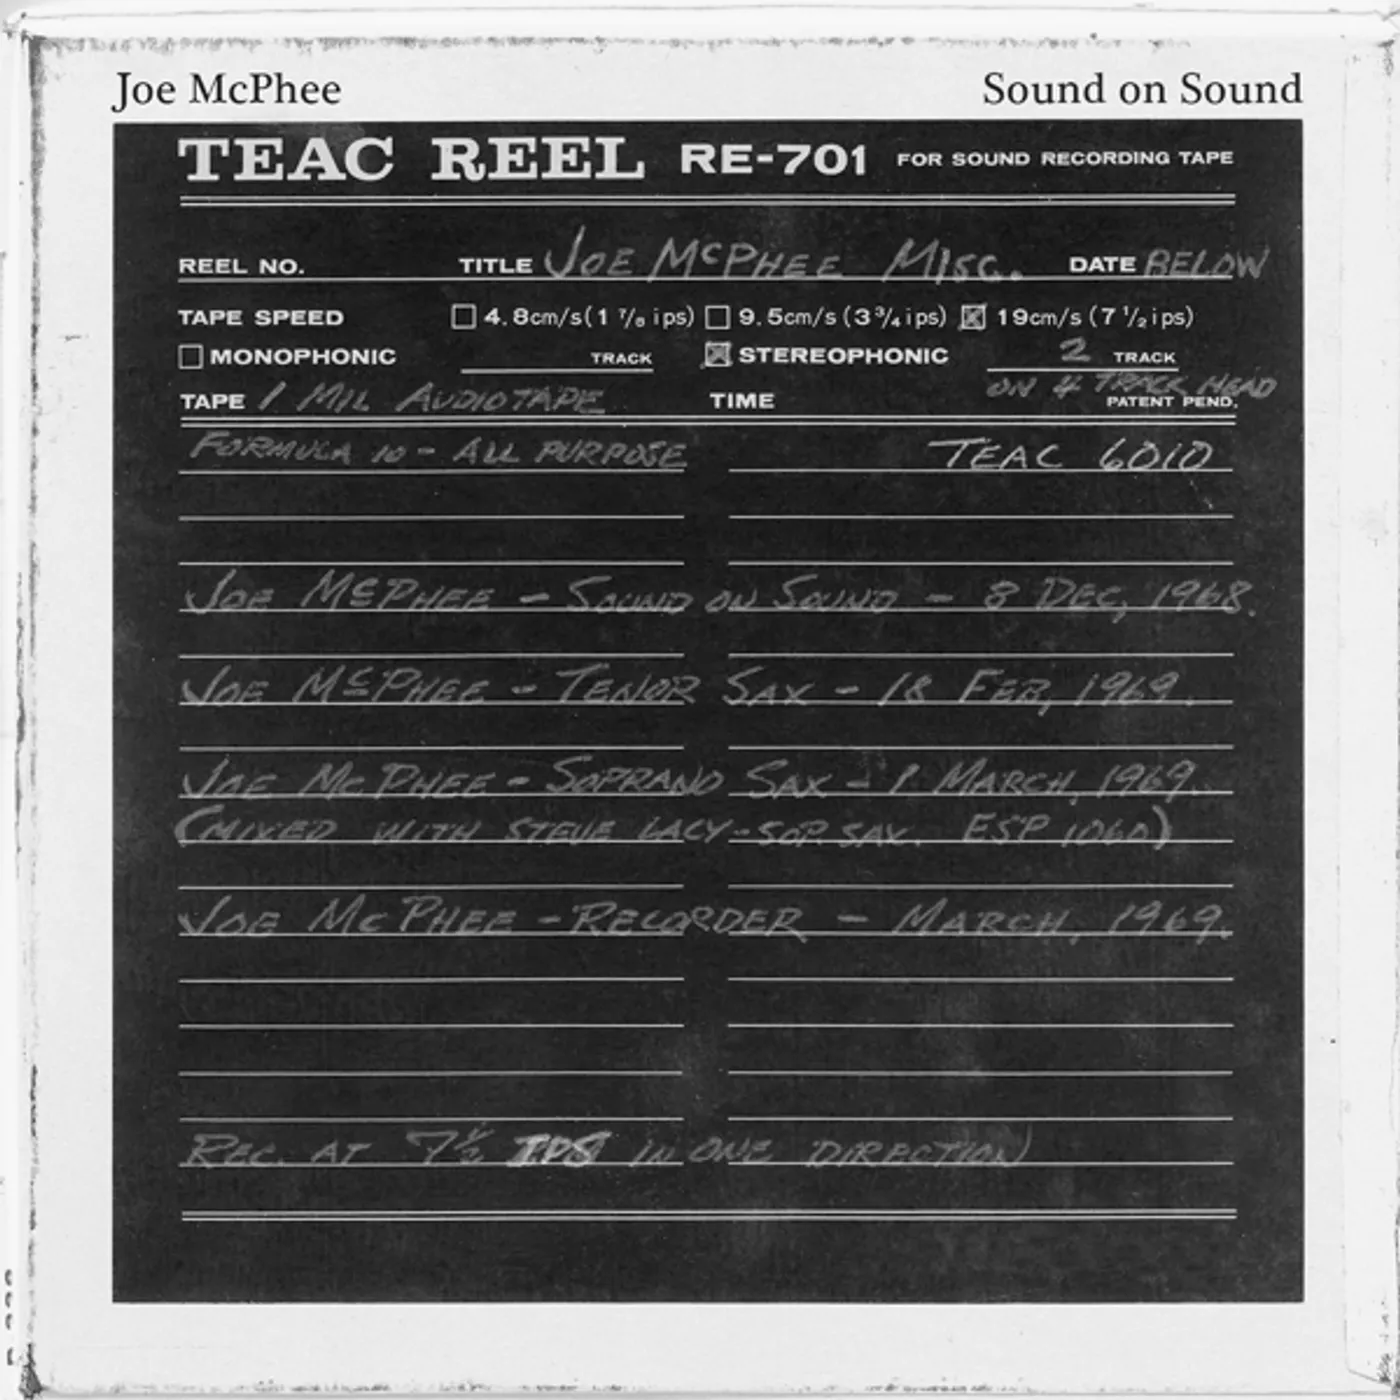 Joe McPhee Sound on Sound
TEAC REEL RE-701 FOR SOUND RECORDING TAPE
REEL NO. TITLE JOE McPHEE MISC. DATE BELOW
TAPE SPEED 4.8cm/s (1 7/8 ips) 9.5cm/s (3 3/4 ips) 19cm/s (7 1/2 ips)
MONOPHONIC TRACK STEREOPHONIC 2 TRACK
ON 4 TRACK HEAD
TAPE 1 MIL AUDIOTAPE TIME PATENT PEND.
FORMULA 10 - ALL PURPOSE TEAC 6010
JOE McPHEE - SOUND ON SOUND - 8 DEC, 1968.
JOE McPHEE - TENOR SAX - 18 FEB, 1969.
JOE McPHEE - SOPRANO SAX - 1 MARCH, 1969.
(MIXED WITH STEVE LACY - SOP. SAX. ESP 1060)
JOE McPHEE - RECORDER - MARCH, 1969.
REC. AT 7 1/2 IPS IN ONE DIRECTION